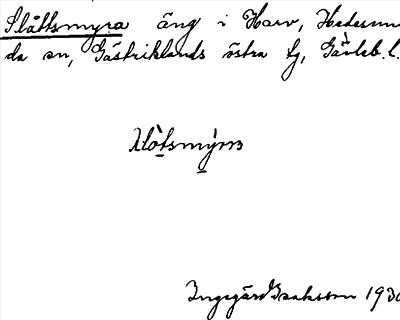 Slåttsmyra äng i Harv, Hedesun
da sn, Gästriklands östra tg, Gävleb.l.
Ingegärd Isaksson 193